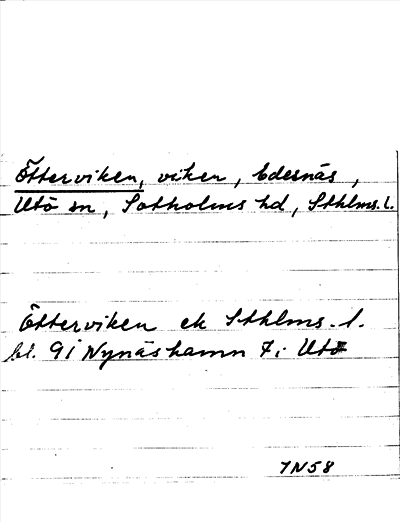 Ötterviken, viken, Edesnäs,
Utö sn, Sotholms hd, Sthlms. l.
Ötterviken ek Sthlms. l.
bl. 9 i Nynäshamn 7 i Utö
7N58